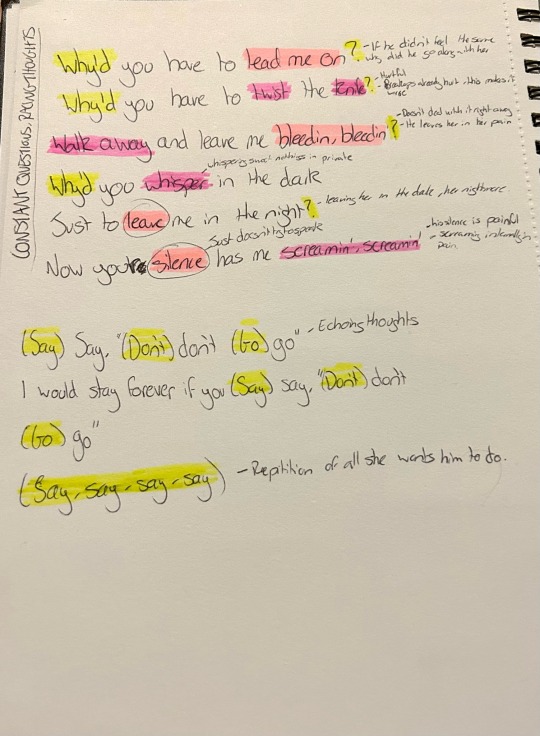 CONSTANT QUESTIONS, RACING THOUGHTS
Why'd you have to lead me on?
- If he didn't feel the same why did he go along with her
Why'd you have to twist the knife?
- Hurtful
- Breakups already hurt, this makes it worse
Walk away and leave me bleedin, bleedin?
- Doesn't deal with it right away
- He leaves her in her pain
whispering sweet nothings in private
Why'd you whisper in the dark
Just to leave me in the night?
- leaving her in the dark, her nightmare.
Just doesn't try to speak
Now your silence has me screamin', screamin'
- his silence is painful
- screaming in pain.
(Say) Say, "(Don't) don't (Go) go"
- Echoing thoughts
I would stay forever if you (Say) say, "(Don't) don't
(Go) go"
(Say, say, say, say)
- Repitition of all she wants him to do.